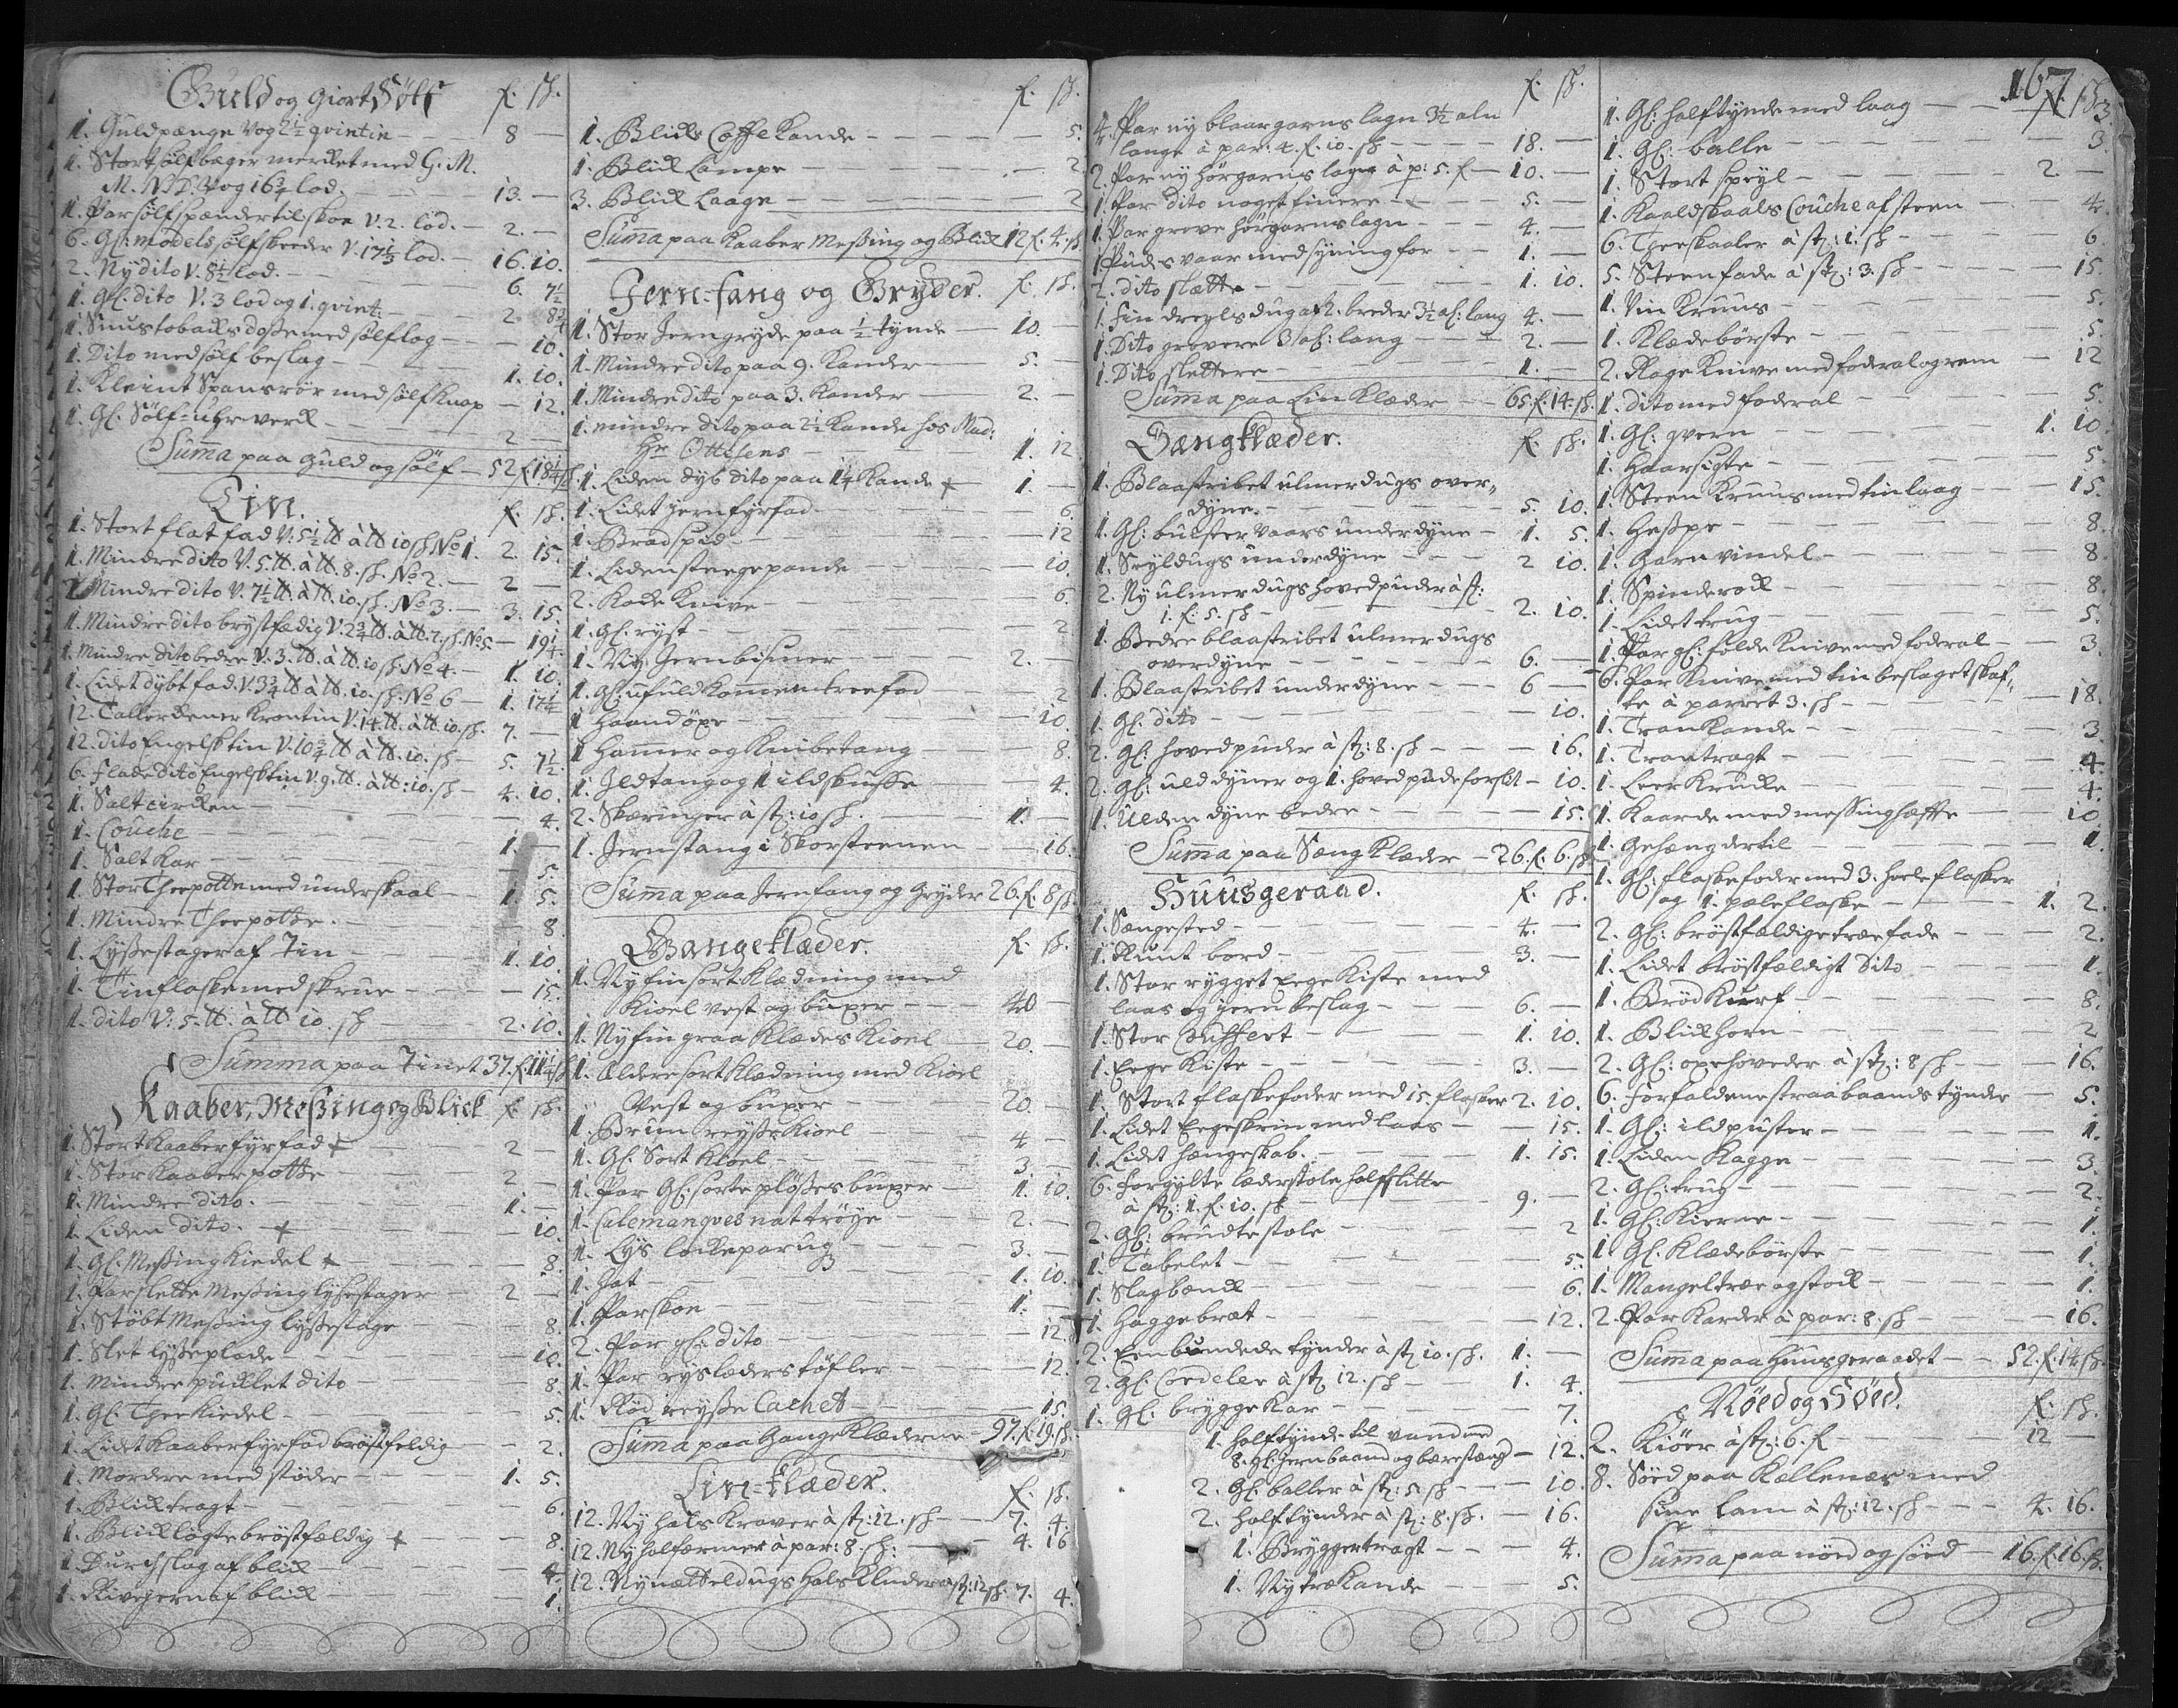 Guld og Giort Sölf f. ß.
1. Guldpænge Vog 2½ qvintin — 8 —
1. Stort sölfbæger merket med G. M.
M. N. D. Vog 16¾ lod. — 13. —
1. Par sölfspænder til skoe V. 2. lod. — 2. —
6. Gl: models sölfskeeder V. 17⅓ lod. — 16. 10.
2. Ny dito V. 8½ lod. — 6. 7½
1. Gl. dito V. 3 lod og 1. qvint: — 2. 8¾
1. Snustobacks dosse med sölflog — 10.
1. Dito med sölf beslag — 1. 10.
1. Kleint Spansrör med sölf Knap — 12.
1. Gl: Sölf-uhrverck — 2 —
Suma paa Guld og sölf — 52 f. 18¼ ß.
Tin. f. ß.
1. Stort flat fad V. 5½ ℔ à ℔ 10 ß No 1. 2. 15.
1. Mindre dito V. 5. ℔. à ℔. 8. ß. No 2. — 2 —
1. Mindre dito V. 7½ ℔. à ℔. 10. ß. No 3. — 3. 15.
1. Mindre dito bröstfædig V. 2¾ ℔. à ℔. 7. ß. No 5 — 19¼
1. Mindre dito bedre V. 3. ℔. à ℔. 10 ß. No 4. — 1. 10.
1. Lidet dybt fad. V. 3¾ ℔ à ℔. 10. ß. No 6 — 1. 17½
12. Tallerckener Krontin V. 14 ℔. à ℔. 10. ß. 7. —
12. dito Engelsk tin V. 10¾ ℔ à ℔. 10. ß — 5. 7½.
6. Flade dito Engelsk tin V. 9. ℔. à ℔: 10. ß — 4. 10.
1. Saltcircken — 4.
1. Couche — 1. —
1. Salt Kar — 5.
1. Stor Theepotte med underskaal — 1. 5.
1. Mindre Theepotte. — 8.
1. Lyssestager af Tin — 1. 10.
1. Tinflaske med skrue — 15.
1. dito V: 5. ℔. à ℔ 10. ß — 2. 10.
Summa paa Tinet 37. f. 11¼ ß
Kaaber, Messing og Blick f. ß.
1. Stort Kaaber fyrfad + — 2 —
1. Stor Kaaberpotte — 2 —
1. Mindre dito. — 1. —
1. Liden dito. + — 10.
1. Gl. Messing Kiedel + — 8.
1. Par slette Messing lysestager — 2 —
1. Stöbt Messing lyssestage — 8.
1. Slet lysseplade — 10.
1. Mindre pucklet dito — 8.
1. Gl: TheeKiedel — 5.
1. Lidet Kaaberfyrfad bröstfeldig — 2.
1. Mordere med stöder — 1. 5.
1. Blicktragt — 6.
1. Blick lögte bröstfældig + — 8.
1. Durchslag af blick — 4
1. Rivejern af blick — 1.
f. ß.
1. Blick CaffeKande — 5.
1. Blick Lampe — 2.
3. Blick Laage — 2
Suma paa Kaaber Messing og Blick 12 f. 4. ß
Jern-fang og Gryder. f. ß.
1. Stor Jerngryde paa ½ tynde — 10. —
1. Mindre dito paa 9. Kander — 5. —
1. Mindre dito paa 3. Kander — 2. —
1. mindre dito paa 2½ Kande hos Mad:
Hr Ottesens — 1. 12
1. Liden dyb dito paa 1¼ Kande + — 1. —
1. Lidet jernfyrfad — 6.
1. Bradspid — 12
1. Liden steegepande — 10.
2. Kode Knive — 6.
1. Gl. ryst — 2.
1. Ny Jernbismer — 2. —
1. Gl: ufuldkommen treefod — 2
1 Haandöxe — 10.
1 Hammer og Knibetang — 8.
1. Ildtang og 1 ildskuffe — 4.
2. Skæringer à st: 10 ß. — 1. —
1. Jernstang i Skorsteenen — 16.
Suma paa Jernfang og Gryder 26. f. 8 ß
Gangeklæder. f. ß.
1. Ny fin sort Klædning med
Kioel vest og buxer — 40 —
1. Ny fin graa Klædes Kioel — 20. —
1. Ældere sort Klædning med Kioel
Vest og buxer — 20. —
1. Bruun reysse Kioel — 4 —
1. Gl. Sort Kioel — 3. —
1. Par Gl: sorte plösses buxer — 1. 10.
1. Calemanqves nattröye — 2. —
1. Lys lockeparug — 3. —
1. Hat — 1. 10.
1. Par skoe — 1. —
2. Par gl: dito — 12.
1. Par ryslæders töfler — 12.
1. Röd reysse Cachet — 15.
Suma paa Gange Klæderne — 97. f. 19. ß.
Lin-klæder. f. ß.
12. Ny hals Kraver à st: 12. ß — 7. 4.
12. Ny halfærmer à par: 8. ß: — 4. 16
12. Ny netteldugs Hals Kluder à st: 12 ß. 7. 4.
f. ß.
4. Par ny blaargarns lagn 3½ aln
lange à par: 4. f. 10. ß — 18. —
2. Par ny hörgarns lagn à p: 5. f — 10. —
1. Par dito noget finere — 5. —
1. Par grove hörgarns lagn — 4. —
1. Pudevaar med syning for — 1. —
2. dito slætte — 1. 10.
1. Fin dreyls dug af 2. breder 3½ al: lang 4. —
1. Dito grovere 3 al: lang — 2. —
1. Dito slettere — 1. —
Suma paa Lin Klæder — 65. f. 14. ß.
Sængklæder. f. ß.
1. Blaastribet ulmerdugs over-
dyne. — 5. 10.
1. Gl: bulster vaars underdyne — 1. 5.
1. Seyldugs underdyne — 2 10.
2. Ny ulmerdugs hovedpuder à st:
1. f: 5. ß — 2. 10.
1. Bedre blaastribet ulmerdugs
overdyne — 6. —
1. Blaastribet underdyne — 6 —
1. Gl. dito — 10.
2. Gl. hovedpuder à st: 8. ß — 16.
2. Gl: ulddyner og 1. hovedpude forslit — 10.
1. Ulden dyne bedre — 15.
Suma paa Sæng Klæder — 26. f. 6. ß
Huusgeraad. f. ß.
1. Sængested — 4. —
1. Runt bord — 3. —
1. Stor rygget Eege Kiste med
laas og jern beslag — 6. —
1. Stor Cuffert — 1. 10.
1. Eege Kiste — 3. —
1. Stort flaskefoder med 15. flasker 2. 10.
1. Lidet Eegeskrin med laas — 15.
1. Lidet hængeskab. — 1. 15.
6. Forgylte læderstole halfslitte
à st: 1. f. 10. ß — 9. —
2. Gl: brudte stole — 2
1. Tabelet — 5.
1. Slagbænck — 6.
1. Haggebræt — 12.
2. Eenbundede tynder à st 10. ß. 1. —
2. Gl. Cordeler à st 12. ß — 1. 4.
1. Gl: bryggeKar — 7.
1. halftynde til vand med
8. gl: jernbaand og bærestang — 12.
2. Gl: baller à st: 5. ß — 10.
2. halftynder à st: 8. ß. — 16.
1. Bryggertragt — 4.
1. Ny træKande — 5.
167
f. ß
1. Gl: halftynde med laag — 3.
1. Gl: balle — 3.
1. Stort speyl — 2. —
1. Kaaldskaals Couche af steen — 4.
6. Theeskaaler à st: 1. ß — 6
5. Steenfade à st: 3. ß — 15.
1. Vin Kruus — 5.
1. Klædebörste — 5.
2. Rage Knive med foderal og rem — 12
1. dito med foderal — 5.
1. Gl: qvern — 1. 10.
1. Haarsigte — 5.
1. Steen Kruus med tinlaag — 15.
1. Hespe — 8.
1. Garnvindel — 8.
1. Spinderock — 8.
1. Lidet trug — 5.
1. Par gl: folde Knive med foderal — 3.
6. Par Knive med tin beslaget skaf-
te à parret 3. ß — 18.
1. TranKande — 3.
1. Trantragt — 4.
1. LeerKrucke — 4.
1. Kaarde med messinghæfte — 10.
1. Gehæng dertil — 1.
1. Gl: flaskefoder med 3. heele flasker
og 1. pæleflaske — 1. 2.
2. Gl: bröstfældige træefade — 2.
1. Lidet bröstfældigt Dito — 1.
1. BrödKurf — 8.
1. Blickhorn — 2
2. Gl: oxehoveder à st: 8 ß — 16.
6. Forfaldene straabaands tynder — 5.
1. Gl: ildpuster — 1.
1. Liden Kagge — 3.
2. Gl: trug — 2.
1. Gl: Kierne — 1.
1 Gl. Klædebörste — 1.
1. Mangeltræe og stock — 1.
2. Par Karder à par: 8. ß — 16.
Suma paa Huusgeraadet — 52. f. 14 ß.
Nöed og Söed. f. ß.
2. Kiöer à st: 6. f — 12 —
8. Söed paa Kællenæs med
sine lam à st: 12. ß — 4. 16.
Suma paa nöed og söed — 16. f. 16. ß.